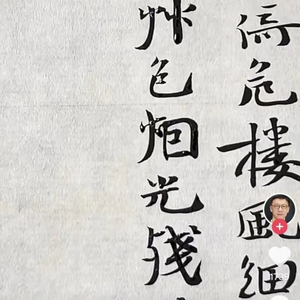 倚危樓風細
艸色烟光殘